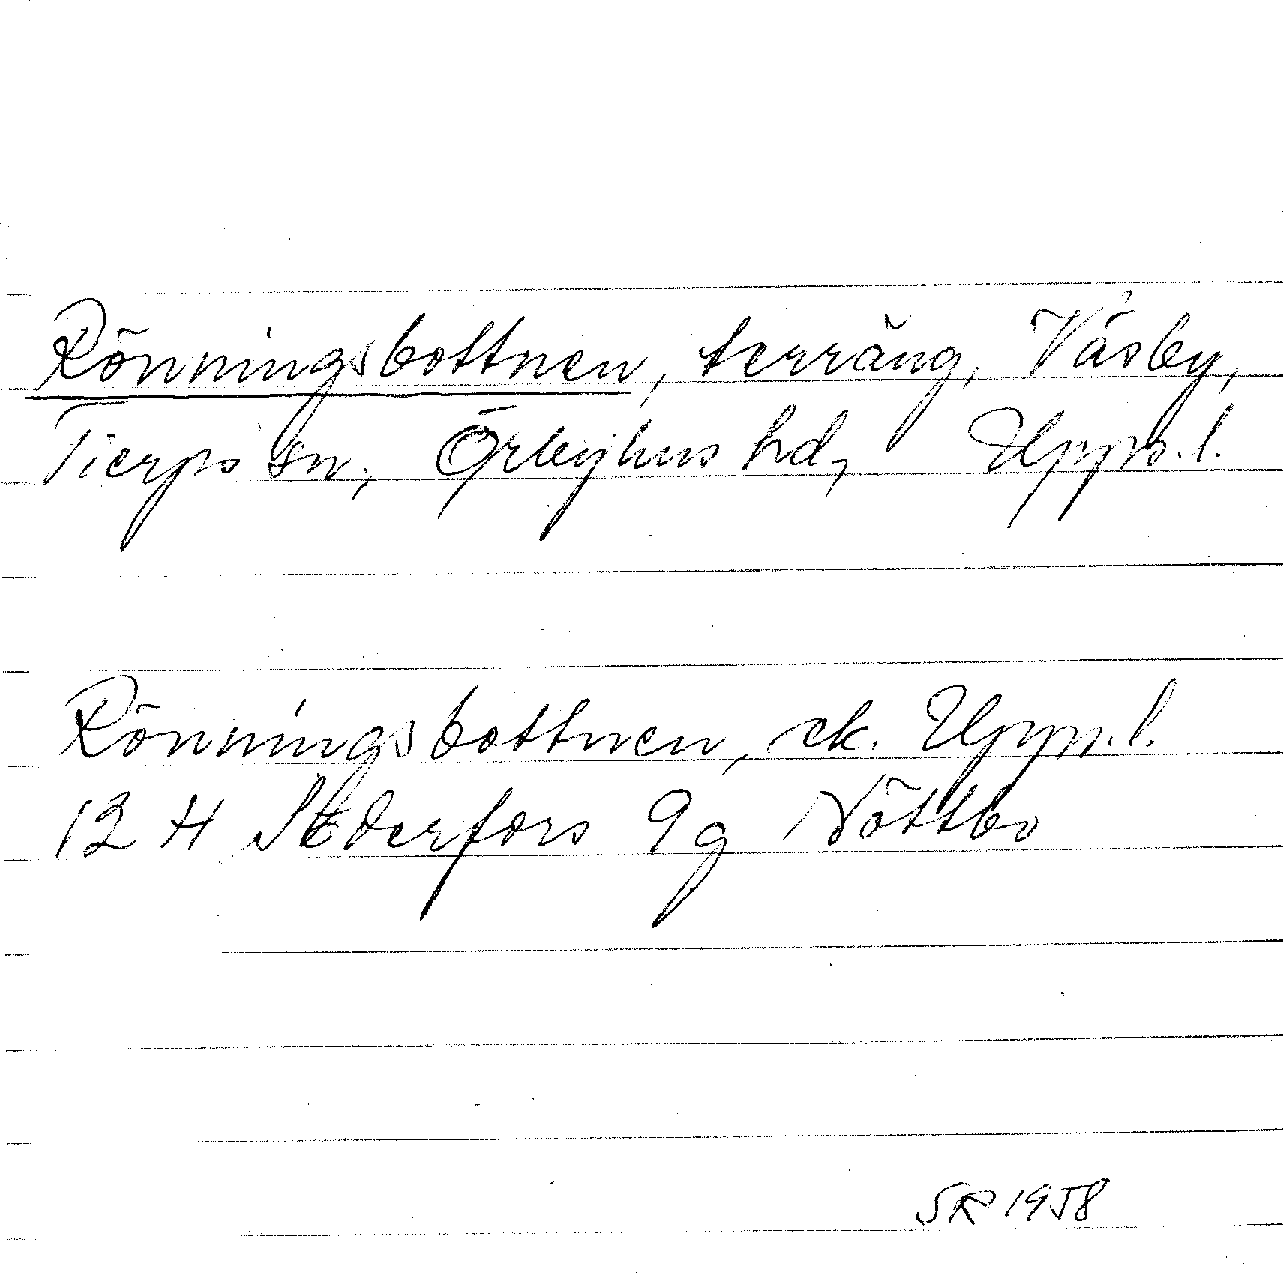 Rönningsbottnen, terräng, Väsby,
Tierps sn, Örbyhus hd, Upps. l.
Rönningsbottnen, ek. Upps. l.
12 H Söderfors 9g Nöttbo
SR 1958